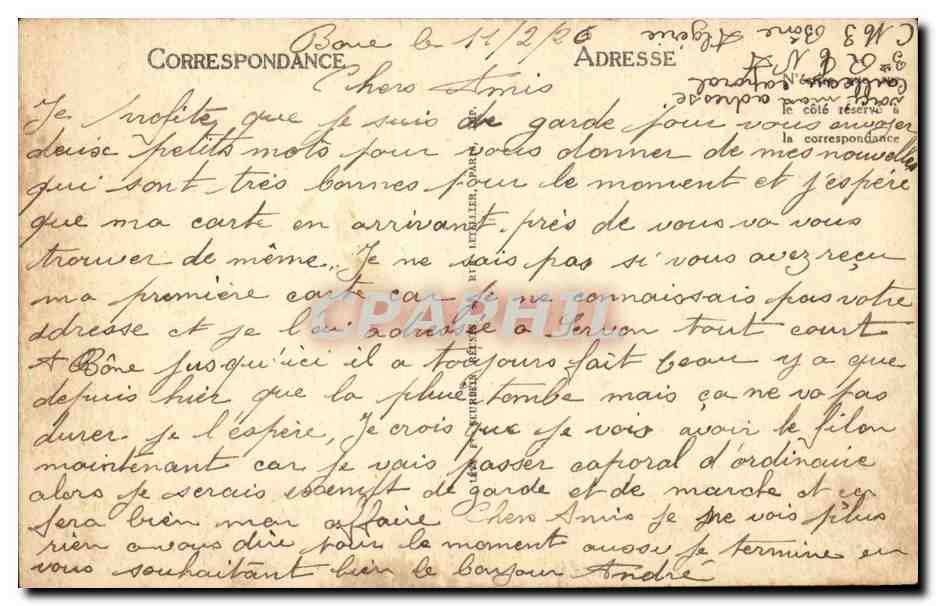 Bone le 11/2/26
CORRESPONDANCE
ADRESSE
Chers Amis
Je Profite que je suis de garde pour vous envoyer
deux petits mots pour vous donner de mes nouvelles
qui sont très bonnes pour le moment et j'espére
que ma carte en arrivant près de vous va vous
trouver de même. Je ne sais pas si vous avez reçu
ma première carte car je ne connaissais pas votre
adresse et je l'ai adressée a Servon tout court
A Bône jusqu'ici il a toujours fait beau y a que
depuis hier que la pluie tombe mais ça ne va pas
durer je l'espère, Je crois que je vais avoir le filon
maintenant car je vais passer caporal d'ordinaire
alors je serais exempt de garde et de marche et ça
fera bien mon affaire Chers Amis je ne vois plus
rien a vous dire pour le moment aussi je termine en
vous souhaitant bien le bonjour André
voici mon adresse
caporal
Bône Algérie
le côté réservé à
la correspondance
LETELLER, PARIS
CPAPHIL